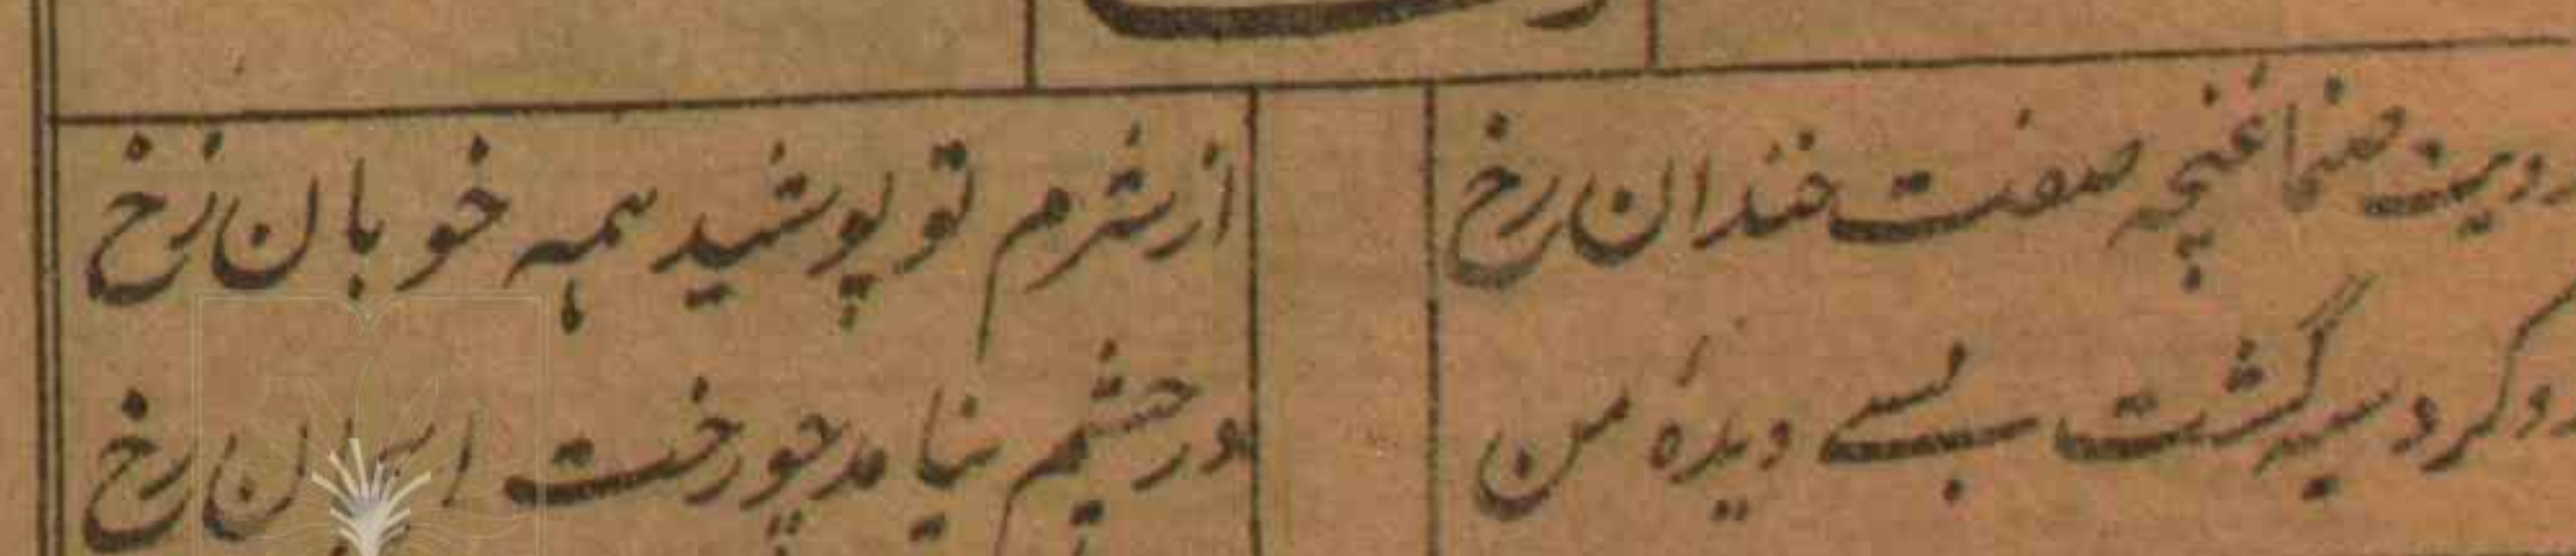 صنما غنچه صفت خندان رخ
از شرم تو پوشید همه خوبان رخ
کرد و سیه گشت بسے دیدۂ من
در چشم نیامد چو رخت ان رخ